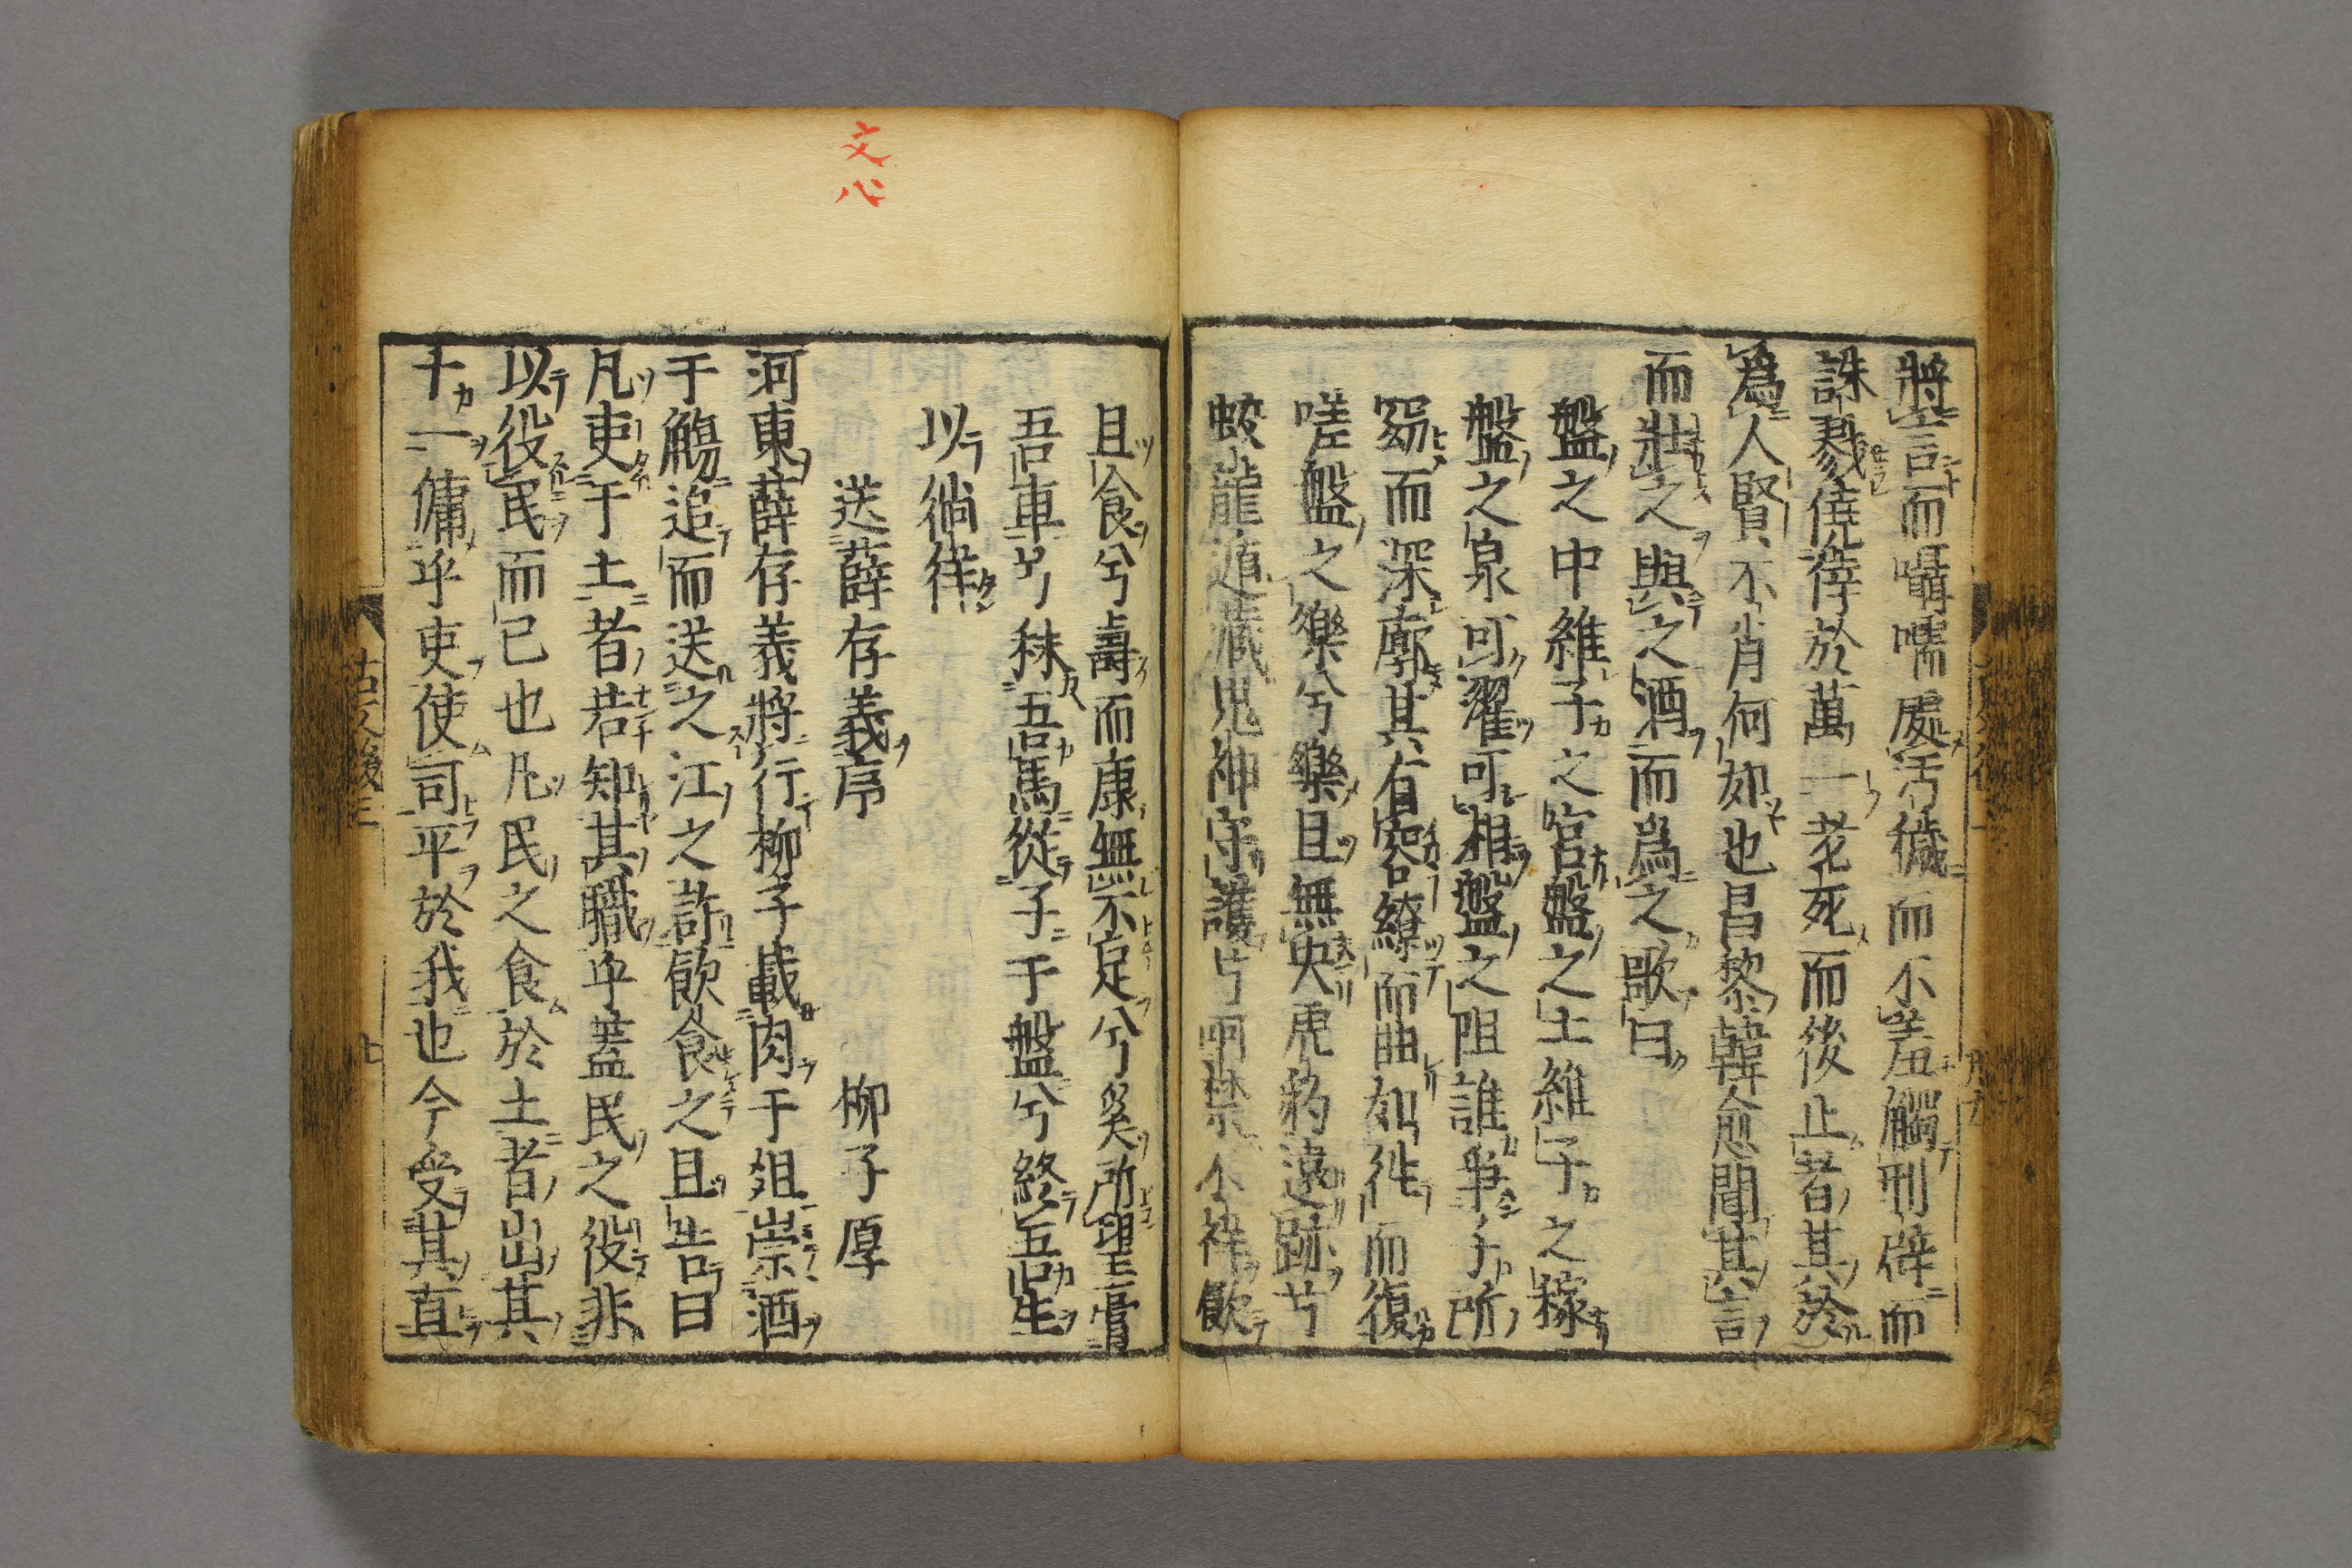 將言而囁嚅處汚穢而不羞觸刑辟而
誅戮僥倖於萬一老死而後止者其於
爲人賢不肖何如也昌黎韓愈聞其言
而壯之與之酒而爲之歌曰
盤之中維子之宮盤之土維子之稼
盤之泉可濯可湘盤之阻誰爭子所
窈而深廓其有容繚而曲如徃而復
嗟盤之樂兮樂且無央虎豹遠跡兮
蛟龍遁藏鬼神守護兮呵禁不祥飮
且食兮壽而康無不足兮奚所望膏
吾車兮秣吾馬從子于盤兮終吾生
以徜徉
送薛存義序 柳子厚
河東薛存義將行柳子載肉于俎崇酒
于觴追而送之江之滸飮食之且告曰
凡吏于土者若知其職乎蓋民之役非
以役民而已也凡民之食於土者出其
十一傭乎吏使司平於我也今受其直
文